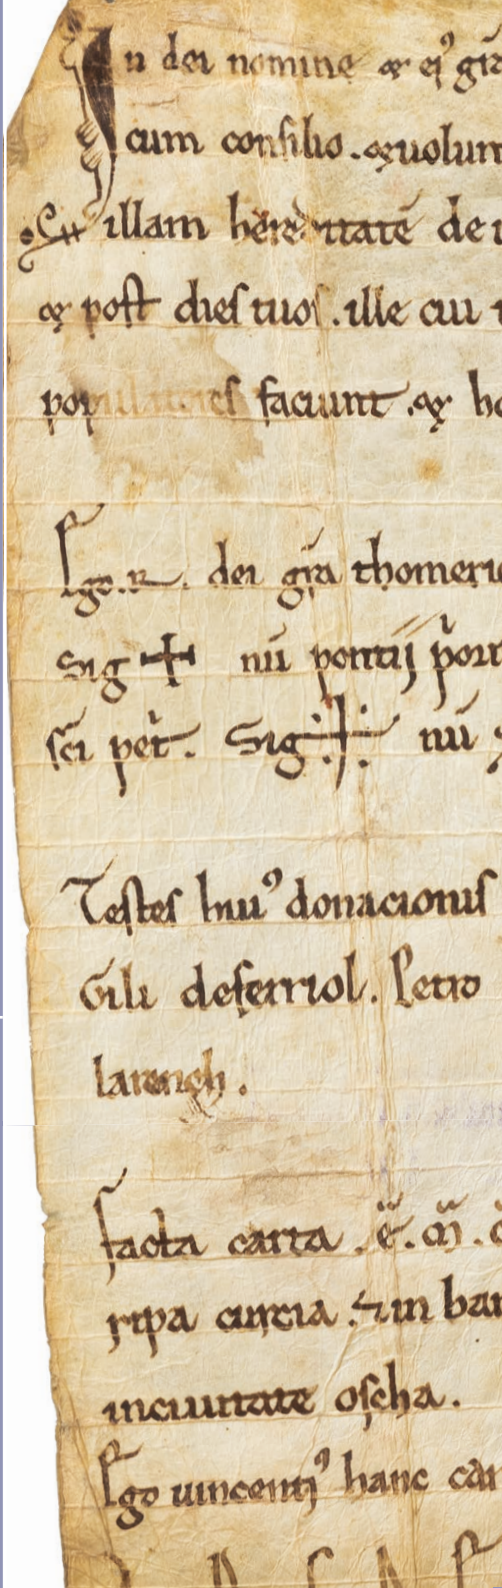 In dei nomine & ei⁹ gr̄a
cum consilio. & uolun
illam hereditatē de
& post dies tuos. ille cui
populatores faciunt. & h
Ego. R. dei gr̄a thomeri
Sig + nū pontij p̄ori
sc̄i pet̄. Sig + nū
Testes hui⁹ donacionis
Gili deferriol. Petro
larengh.
facta carta . ē. m̄.
ripa curcia. ⁊ in bar
inciuitate oscha.
Ego uincenti⁹ hanc car